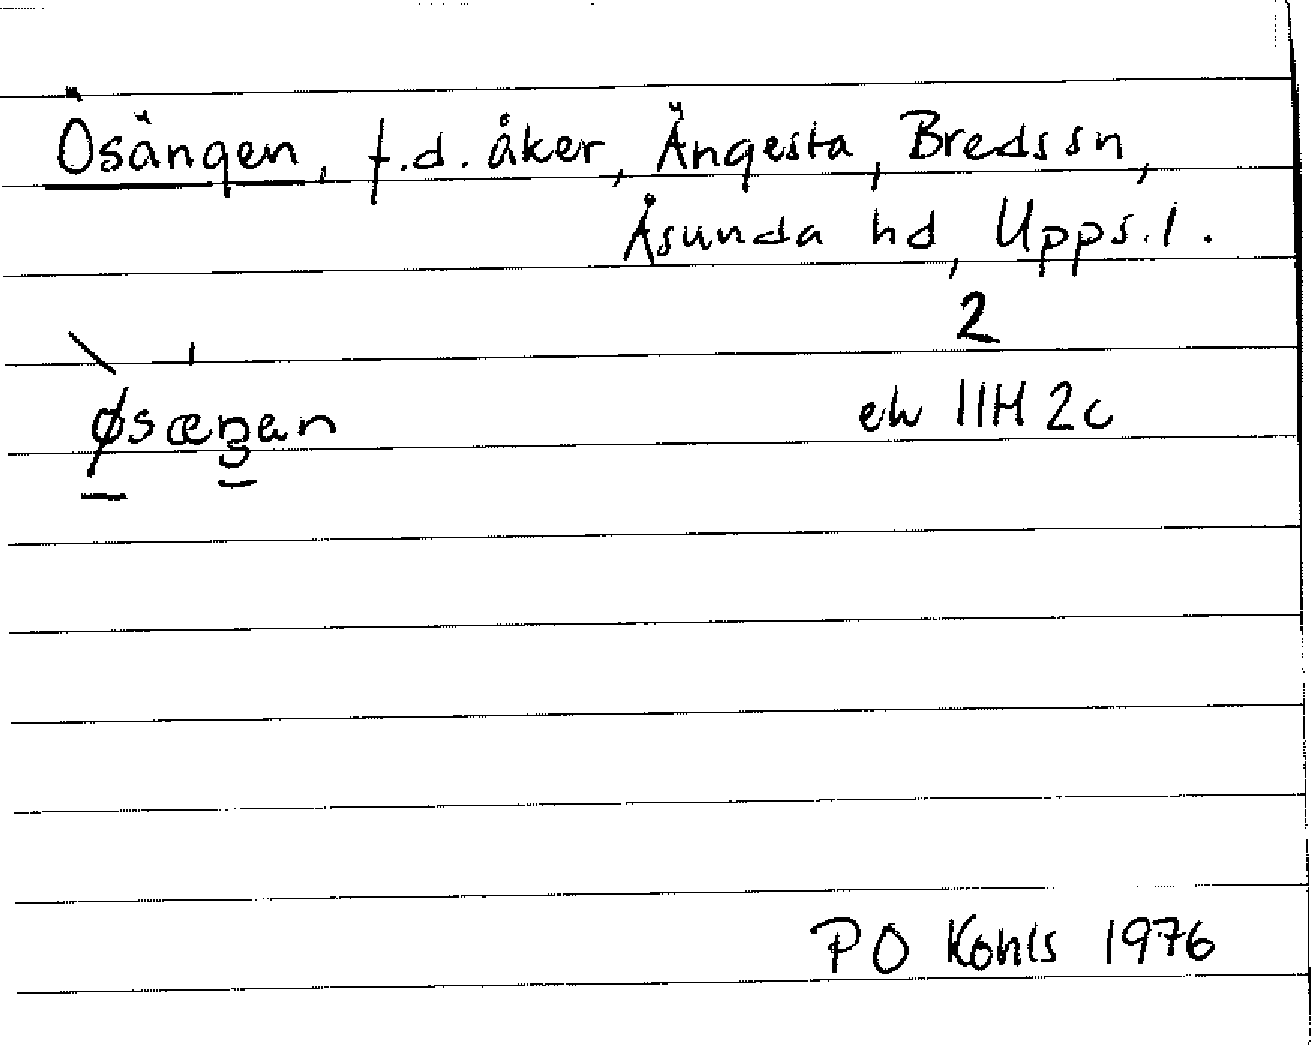 Ösängen, f.d. åker, Ängesta, Breds sn,
Åsunda hd, Upps.l.
2
øsæŋan
ek 11H 2c
PO Kohls 1976